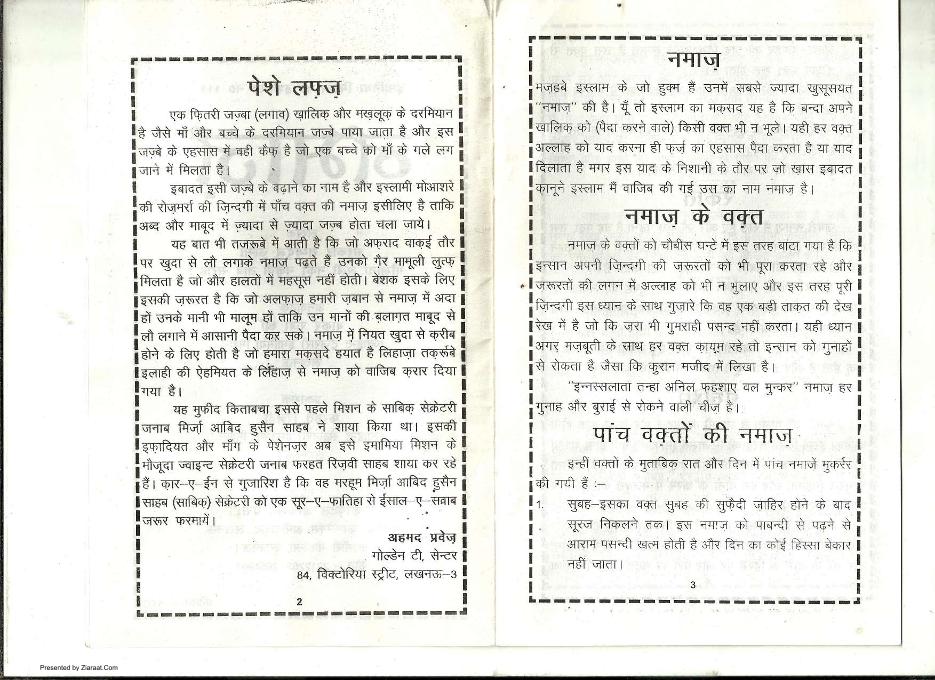 पेशे लफ़्ज़
एक फ़ितरी जज़्बा (लगाव) ख़ालिक़ और मख़लूक़ के दरमियान
है जैसे माँ और बच्चे के दरमियान जज़्बे पाया जाता है और इस
जज़्बे के एहसास में वही कैफ़ है जो एक बच्चे को माँ के गले लग
जाने में मिलता है।
इबादत इसी जज़्बे के बढ़ाने का नाम है और इस्लामी मोआशरे
की रोज़मर्रा की ज़िन्दगी में पाँच वक़्त की नमाज़ इसीलिए है ताकि
अब्द और माबूद में ज़्यादा से ज़्यादा जज़्ब होता चला जाये।
यह बात भी तजरूबे में आती है कि जो अफ़राद वाक़ई तौर
पर खुदा से लौ लगाके नमाज़ पढ़ते हैं उनको ग़ैर मामूली लुत्फ़
मिलता है जो और हालतों में महसूस नहीं होती। बेशक इसके लिए
इसकी ज़रूरत है कि जो अलफ़ाज़ हमारी ज़बान से नमाज़ में अदा
हों उनके मानी भी मालूम हों ताकि उन मानों की बलाग़त माबूद से
लौ लगाने में आसानी पैदा कर सके। नमाज़ में नियत खुदा से क़रीब
होने के लिए होती है जो हमारा मक़सदे हयात है लिहाज़ा तक़र्रूबे
इलाही की ऐहमियत के लिहाज़ से नमाज़ को वाजिब क़रार दिया
गया है।
यह मुफ़ीद किताबचा इससे पहले मिशन के साबिक़ सेक्रेटरी
जनाब मिर्ज़ा आबिद हुसैन साहब ने शाया किया था। इसकी
इफ़ादियत और माँग के पेशेनज़र अब इसे इमामिया मिशन के
मौजूदा ज्वाइन्ट सेक्रेटरी जनाब फरहत रिज़वी साहब शाया कर रहे
हैं। क़ार–ए–ईन से गुज़ारिश है कि वह मरहूम मिर्ज़ा आबिद हुसैन
साहब (साबिक़) सेक्रेटरी को एक सूर–ए–फ़ातिहा से ईसाल–ए–सवाब
ज़रूर फरमायें।
अहमद प्रवेज़
गोल्डेन टी, सेन्टर
84, विक्टोरिया स्ट्रीट, लखनऊ–3
2
नमाज़
मज़हबे इस्लाम के जो हुक्म हैं उनमें सबसे ज्यादा खुसूसयत
"नमाज़" की है। यूँ तो इस्लाम का मक़सद यह है कि बन्दा अपने
ख़ालिक़ को (पैदा करने वाले) किसी वक्त भी न भूले। यही हर वक्त
अल्लाह को याद करना ही फर्ज़ का एहसास पैदा करता है या याद
दिलाता है मगर इस याद के निशानी के तौर पर जो खास इबादत
क़ानूने इस्लाम में वाजिब की गई उस का नाम नमाज़ है।
नमाज़ के वक़्त
नमाज के वक्तों को चौबीस घन्टे में इस तरह बांटा गया है कि
इन्सान अपनी ज़िन्दगी की ज़रूरतों को भी पूरा करता रहे और
ज़रूरतों की लगन में अल्लाह को भी न भुलाए और इस तरह पूरी
ज़िन्दगी इस ध्यान के साथ गुज़ारे कि वह एक बड़ी ताकत की देख
रेख में है जो कि ज़रा भी गुमराही पसन्द नहीं करता। यही ध्यान
अगर मज़बूती के साथ हर वक्त क़ायम रहे तो इन्सान को गुनाहों
से रोकता है जैसा कि कुरान मजीद में लिखा है।
"इन्नस्सलाता तन्हा अनिल फ़हशाए वल मुन्कर" नमाज़ हर
गुनाह और बुराई से रोकने वाली चीज़ है।
पांच वक़्तों की नमाज़
इन्हीं वक्तों के मुताबिक रात और दिन में पांच नमाजें मुकर्रर
की गयी हैं :–
1. सुबह–इसका वक्त सुबह की सुफ़ैदी ज़ाहिर होने के बाद
सूरज निकलने तक। इस नमाज़ को पाबन्दी से पढ़ने से
आराम पसन्दी खत्म होती है और दिन का कोई हिस्सा बेकार
नहीं जाता।
3
Presented by Ziaraat.Com